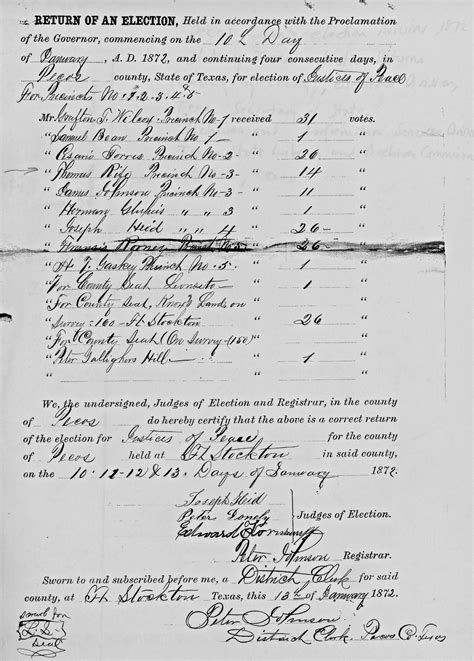 RETURN OF AN ELECTION, Held in accordance with the Proclamation
of the Governor, commencing on the 10th Day
of January, A. D. 1872, and continuing four consecutive days, in
Pecos county, State of Texas, for election of Justices of Peace
For Precincts No. 1.2.3.4.5
Mr. Grafton T. Wilcox Precinct No-1 received 31 votes.
" Samuel Bean Precinct No 1 " 1 "
" Cesario Torres Precinct No-2- " 26 "
" Thomas Rife Precinct No-3- " 14 "
" James Johnson Precinct No-3- " 11 "
" Herman " " 3 " 1 "
" Joseph Heid " " 4 " 26- "
" Francis Rooney No 5 " 26 "
" H. T. Gaskey Precinct No. 5. " 1 "
" For County Seat " 1 "
" For County Seat, Land, on " "
" Survey-160-Ft. Stockton " 26 "
" For County Seat (On Survey-150) " "
" Peter Gallighers Hill- " 1 "
We, the undersigned, Judges of Election and Registrar, in the county
of Pecos do hereby certify that the above is a correct return
of the election for Justices of Peace for the county
of Pecos held at Ft Stockton in said county,
on the 10.11-12 & 13. Days of January 1872.
Joseph Heid
Peter
Edward
Judges of Election.
Peter Johnson Registrar.
Sworn to and subscribed before me, a District Clerk for said
county, at Ft Stockton Texas, this 13th January 1872.
Peter Johnson
District Clerk, Pecos Co Texas
L.S.
Seal